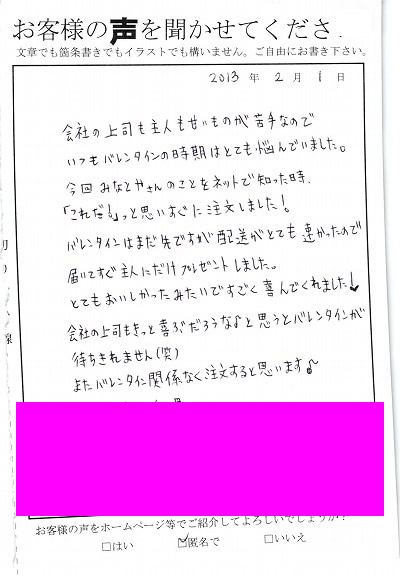 お客様の声を聞かせてくださ
文章でも箇条書きでもイラストでも構いません。ご自由にお書き下さい。
2013 年 2 月 1 日
会社の上司も主人もせいものが苦手なので
いつもバレンタインの時期はとても悩んでいました。
今回みなとやさんのことをネットで知った時、
「これだ!」っと思いすぐに注文しました!
バレンタインはまだ先ですが配送がとても速かったので
届いてすぐ主人にだけプレゼントしました。
とてもおいしかったみたいですごく喜んでくれました!
会社の上司もきっと喜ぶだろうな♪と思うとバレンタインが
待ちきれません(笑)
またバレンタイン関係なく注文すると思います♪
お客様の声をホームページ等でご紹介してよろしいでしょうか?
□はい ☑匿名で □いいえ